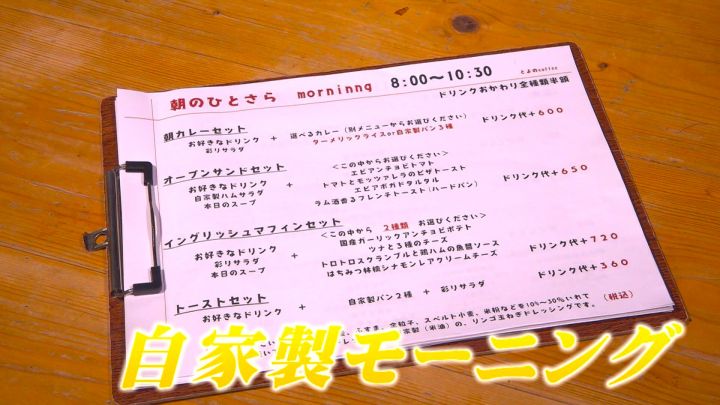 朝のひとさら morninng 8:00〜10:30 とよのcoffee
ドリンクおかわり全種類半額
朝カレーセット
お好きなドリンク + 選べるカレー(別メニューからお選びください) ドリンク代+600
彩りサラダ ターメリックライスor自家製パン3種
オープンサンドセット <この中からお選びください>
お好きなドリンク + エビアンチョビトマト ドリンク代+650
自家製ハムサラダ トマトとモッツァレラのピザトースト
本日のスープ エビアボガドタルタル
ラム酒香るフレンチトースト(ハードパン)
イングリッシュマフィンセット <この中から 2種類 お選びください>
お好きなドリンク + 国産ガーリックアンチョビポテト ドリンク代+720
彩りサラダ ツナと3種のチーズ
本日のスープ トロトロスクランブルと鶏ハムの魚醤ソース
はちみつ林檎シナモンレアクリームチーズ
トーストセット ドリンク代+360
お好きなドリンク + 自家製パン2種 + 彩りサラダ (税込)
ふすま、全粒子、スペルト小麦、米粉などを10%〜30%いれて
自家製(米油)の、リンゴ玉ねぎドレッシングです。
自家製モーニング